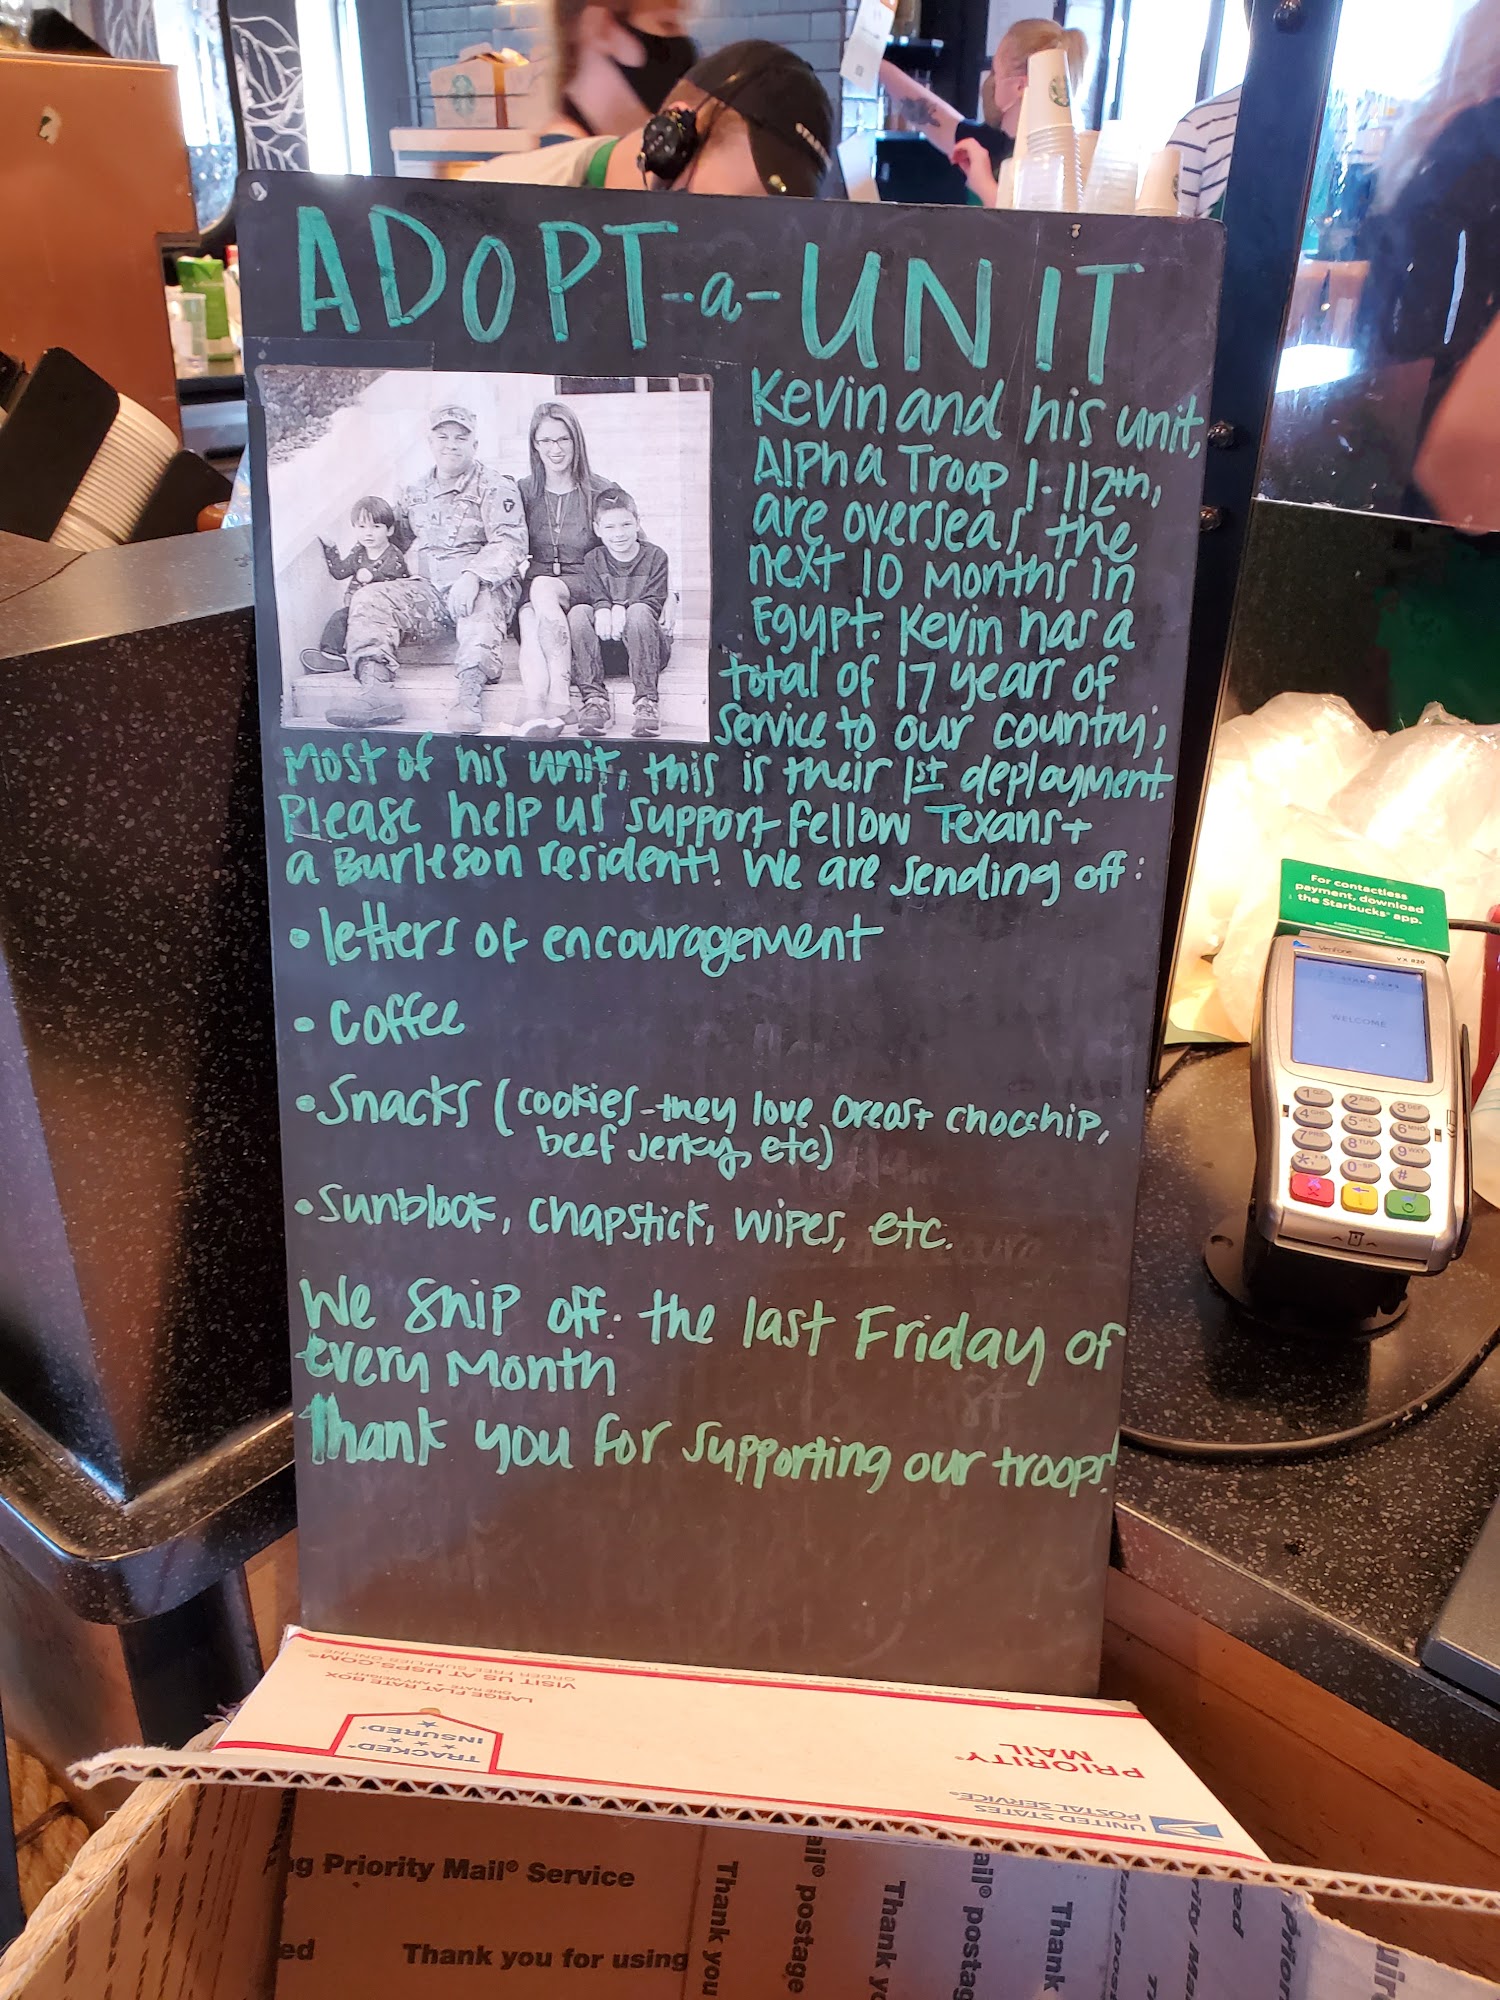 ADOPT-a-UNIT
Kevin and his unit,
Alpha Troop 1-112th,
are overseas the
next 10 months in
Egypt. Kevin has a
total of 17 years of
service to our country;
Most of his unit, this is their 1st deployment.
Please help us support fellow Texans +
a Burleson resident! We are sending off:
• letters of encouragement
• Coffee
• Snacks (cookies-they love oreos + chocchip,
beef jerky, etc)
• Sunblock, chapstick, wipes, etc.
We ship off: the last Friday of
every Month
Thank you for supporting our troops!
For contactless
payment, download
the Starbucks® app.
Verifone
VX 820
WELCOME
VISIT US AT USPS.COM®
ORDER FREE SUPPLIES ONLINE
LARGE FLAT RATE BOX
ONE RATE ANY WEIGHT
TRACKED
INSURED
PRIORITY
MAIL
UNITED STATES
POSTAL SERVICE®
ng Priority Mail® Service
ed
Thank you for using
Thank you
ail® postage
Thank
ail®
Thank